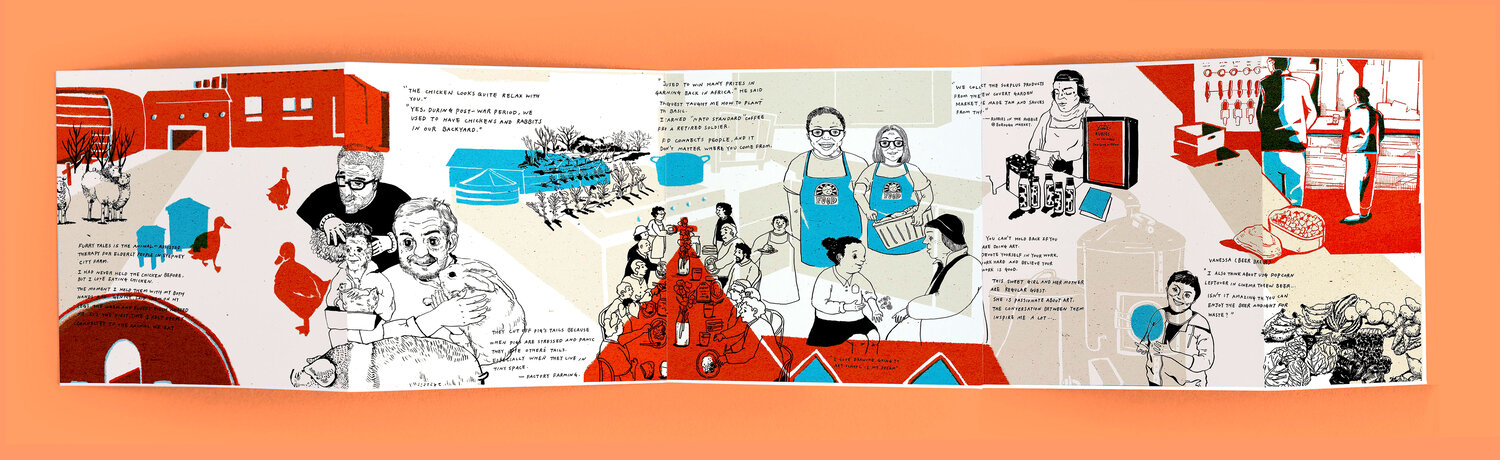 FURRY TALES IS THE ANIMAL-ASSISTED
THERAPY FOR ELDERLY PEOPLE IN STEPNEY
CITY FARM.
I HAD NEVER HELD THE CHICKEN BEFORE,
BUT I LOVE EATING CHICKEN.
THE MOMENT I HELD THEM WITH MY BOTH
HANDS THEM ON MY
LEGS, THE WARM AND FLUFFY
THE FIRST TIME I FELT
CONNECTED TO THE ANIMAL WE EAT.
"THE CHICKEN LOOKS QUITE RELAX WITH
YOU."
"YES, DURING POST-WAR PERIOD, WE
USED TO HAVE CHICKENS AND RABBITS
IN OUR BACKYARD."
THEY CUT OFF PIG'S TAILS BECAUSE
WHEN PIGS ARE STRESSED AND PANIC
THEY BITE OTHERS TAILS
ESPECIALLY WHEN THEY LIVE IN
TINY SPACE.
— FACTORY FARMING.
USED TO WIN MANY PRIZES IN
BACK IN AFRICA." HE SAID
GUEST TAUGHT ME HOW TO PLANT
BASIL
"NATO STANDARD" COFFEE
A RETIRED SOLDIER.
CONNECTS PEOPLE, AND IT
DON'T MATTER WHERE YOU COME FROM.
FOOD
FOOD
"WE COLLECT THE SURPLUS PRODUCTS
FROM THE COVENT GARDEN
MARKET MADE JAM AND SAUCES
FROM
— RUBIES IN THE RUBBLE
@ BOROUGH MARKET.
RUBIES
YOU CAN'T HOLD BACK IF YOU
ARE DOING ART.
DEVOTE YOURSELF IN YOUR WORK,
WORK HARD AND BELIEVE YOUR
WORK IS GOOD.
THIS SWEET GIRL AND HER MOTHER
ARE REGULAR GUEST.
SHE IS PASSIONATE ABOUT ART.
THE CONVERSATION BETWEEN THEM
INSPIRE ME A LOT...
VANESSA (BEER
"I ALSO THINK ABOUT POPCORN
LEFTOVER IN CINEMA BEER...
ISN'T IT AMAZING YOU CAN
ENJOY THE BEER AND
WASTE?"